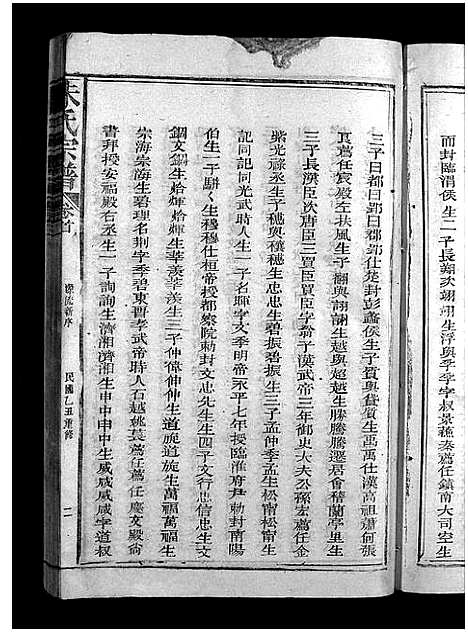 而封臨渭侯生二子長翔次翊翊生浮與季季字叔景穗秦爲任鎮南大司空生
三子曰都曰郢曰郡郢仕楚封彭蠡侯生子質與贊質生禹禹仕漢高祖蕭何張
真爲任宸殿左扶風生子翻與詡詡生越與超越生騰騰騰遷居會稽蘭亭里生
三子長漢臣次唐臣三買臣買臣字翁子漢武帝三年御史大夫公孫宏爲任金
紫光祿丞生子穗與穰穗生忠忠生碧振碧振生三子孟仲季孟生松南松南生
記同記同光武時人生一子名暉字文季明帝永平七年授臨淮府尹勅封南陽
伯生一子駢駢生穆穆仕桓帝授都察院勅封文忠先生生四子文行忠信忠生文
鋼文鋼生烚輝烚輝生華羨華羨生三子仲偉伸伸生道旋道旋生萬福萬福生
宗海宗海生碧理名荆字季碧東晋孝武帝時人石越姚萇爲任爲任慶文殿尙
書拜授安福殿右丞生一子詢詢生濟湘濟湘生申中申中生威咸威咸字道权
朱氏宗譜
卷首
樂流新水
民國乙丑重修
二